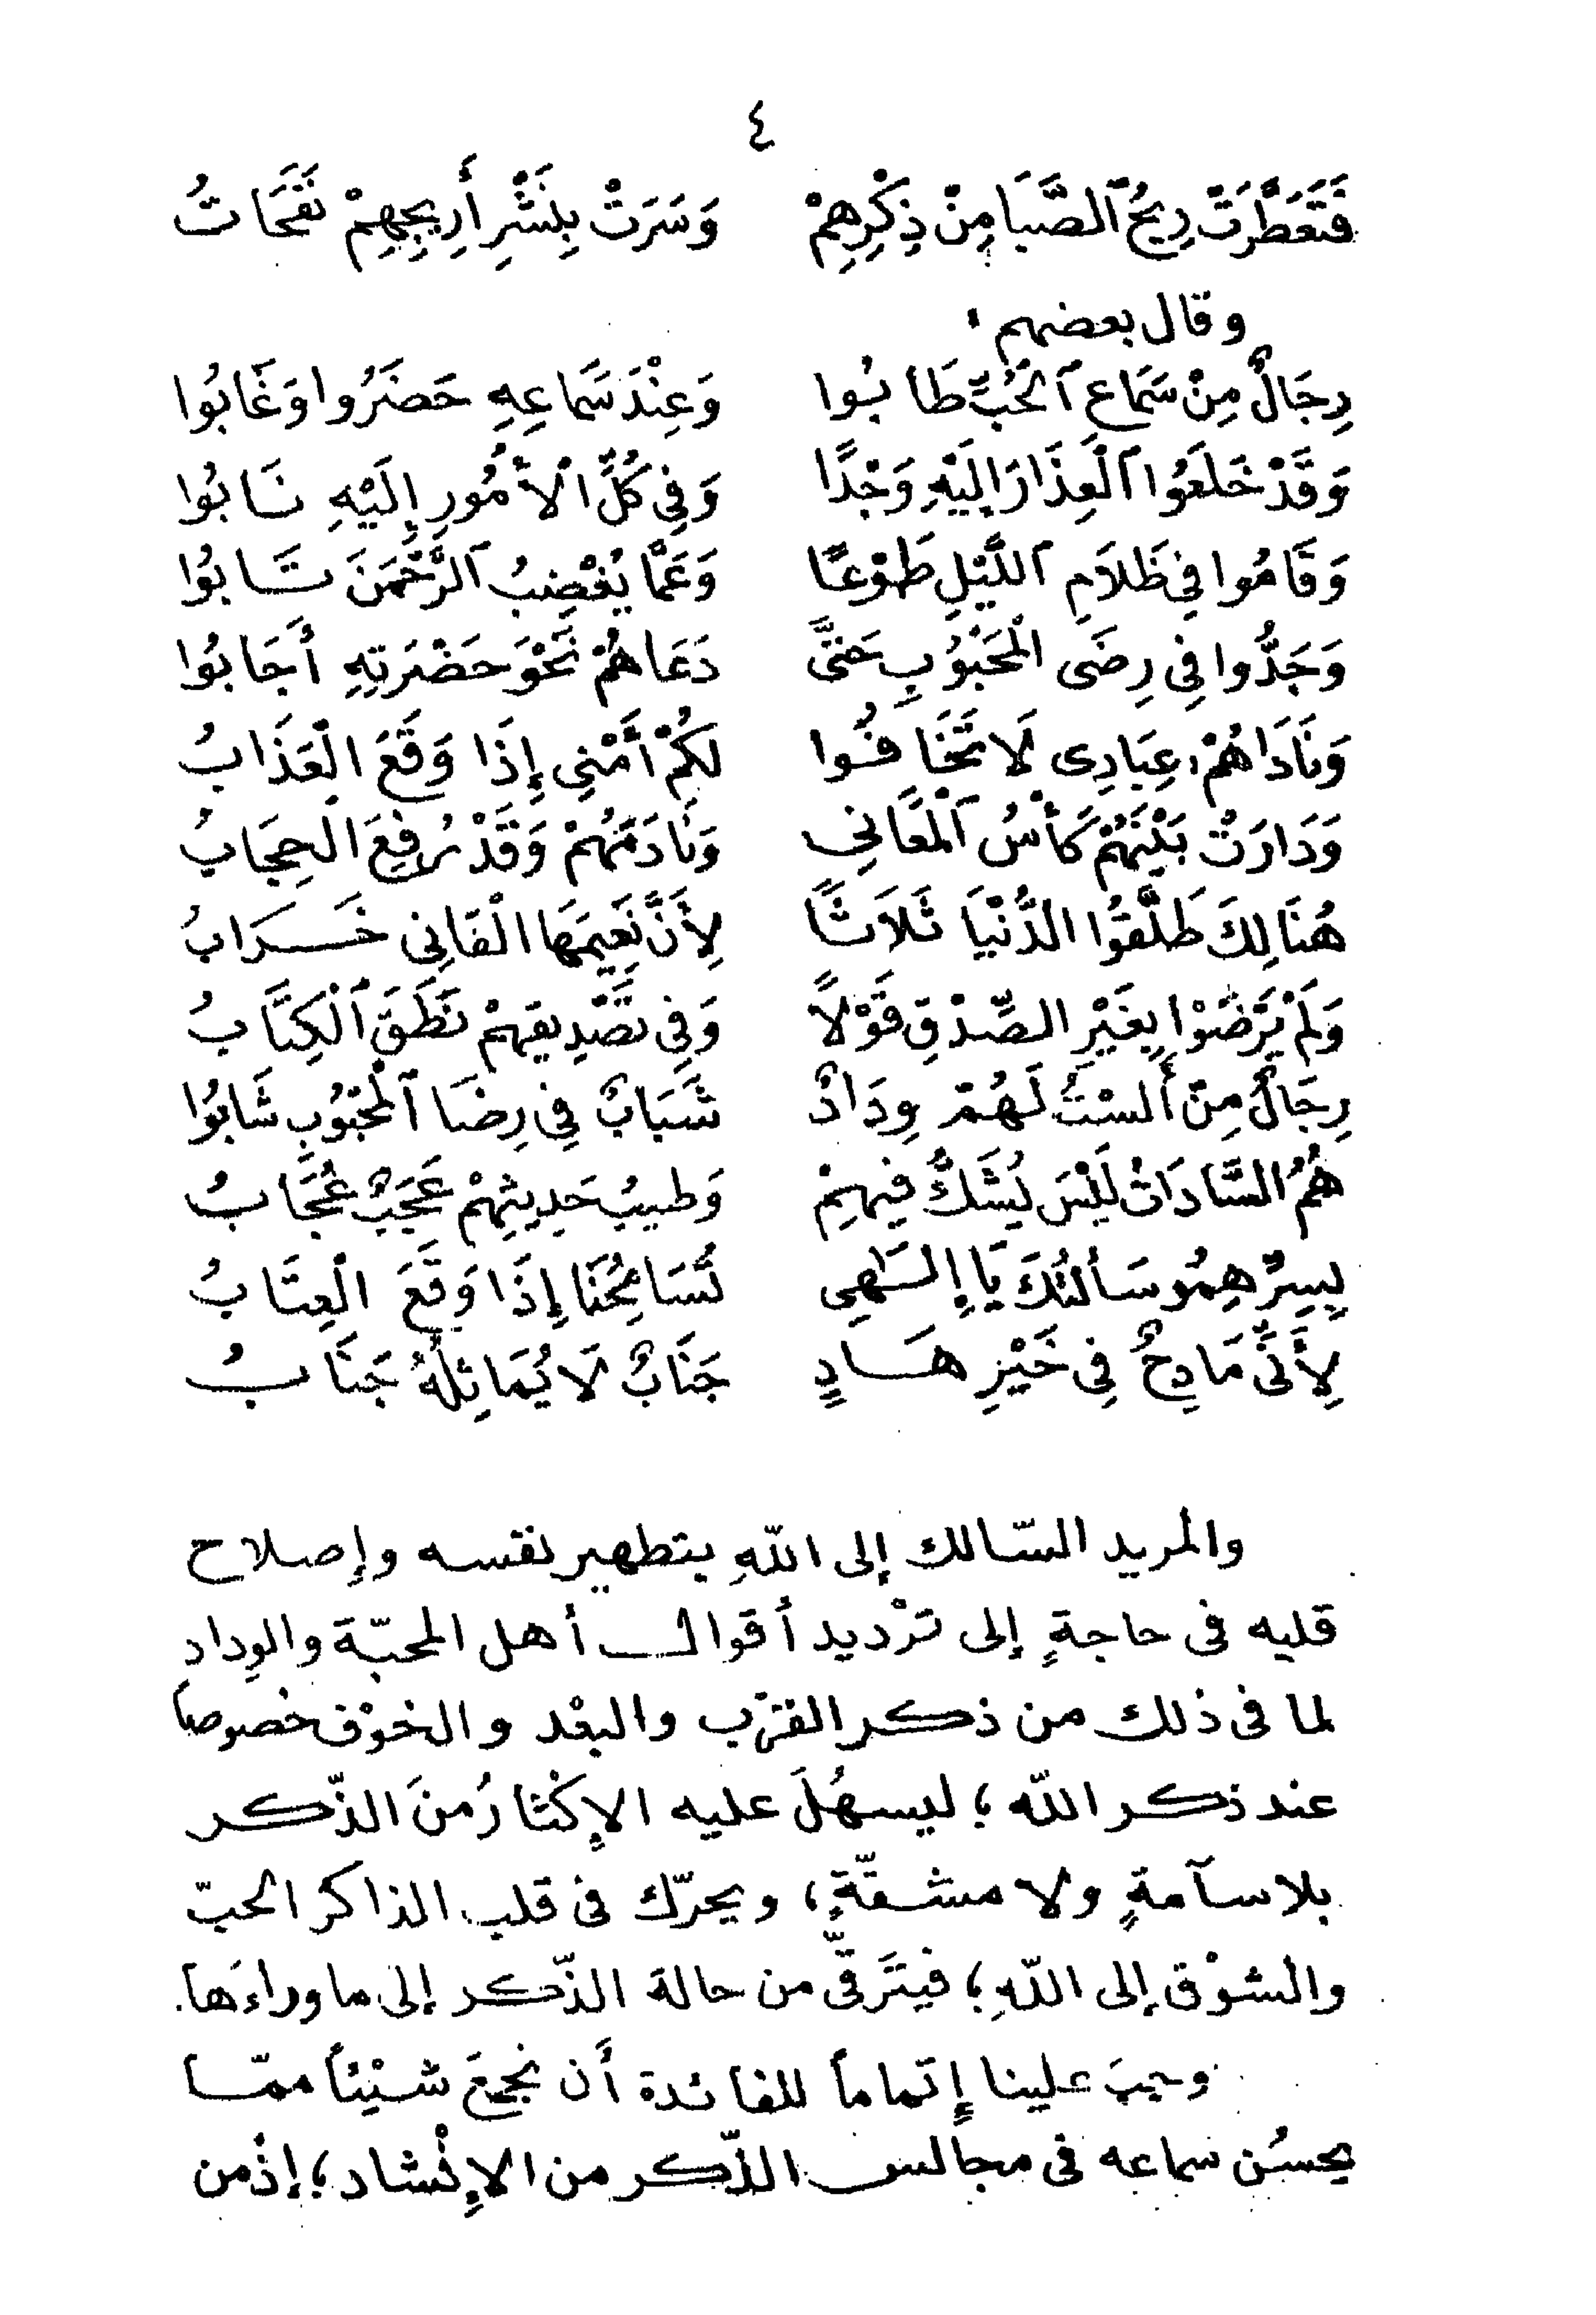 ٤
فَتَعَطَّرَتْ رِيحُ ٱلصَّبَا مِنْ ذِكْرِهِمْ وَسَرَتْ بِنَشْرِ أَرِيجِهِمْ نَفَحَاتُ
وقال بعضهم :
رِجَالٌ مِنْ سَمَاعِ ٱلْحُبِّ طَابُوا وَعِنْدَ سَمَاعِهِ حَضَرُوا وَغَابُوا
وَقَدْ خَلَعُوا ٱلْعِذَارَ إِلَيْهِ وَجْدًا وَفِي كُلِّ ٱلْأُمُورِ إِلَيْهِ نَابُوا
وَقَامُوا فِي ظَلَامِ ٱللَّيْلِ طَوْعًا وَعَمَّا يُغْضِبُ ٱلرَّحْمَنَ تَابُوا
وَجَدُّوا فِي رِضَى الْمَحْبُوبِ حَتَّى دَعَاهُمْ نَحْوَ حَضْرَتِهِ أَجَابُوا
وَنَادَاهُمْ: عِبَادِي لَا تَخَافُوا لَكُمْ أَمْنِي إِذَا وَقَعَ الْعَذَابُ
وَدَارَتْ بَيْنَهُمْ كَأْسُ ٱلْمَعَانِي وَنَادَمَهُمْ وَقَدْ رُفِعَ الْحِجَابُ
هُنَالِكَ طَلَّقُوا الدُّنْيَا ثَلَاثًا لِأَنَّ نَعِيمَهَا الْفَانِي خَرَابُ
وَلَمْ يَرْضَوْا بِغَيْرِ الصِّدْقِ قَوْلًا وَفِي تَصْدِيقِهِمْ نَطَقَ ٱلْكِتَابُ
رِجَالٌ مِنْ أَلَسْتُ لَهُمْ وِدَادٌ شَبَابٌ فِي رِضَا ٱلْمَحْبُوبِ شَابُوا
هُمُ السَّادَاتُ لَيْسَ يُشَكُّ فِيهِمْ وَطِيبُ حَدِيثِهِمْ عَجَبٌ عُجَابُ
بِسِرِّهِمُو سَأَلْتُكَ يَا إِلَٰهِي تُسَامِحُنَا إِذَا وَقَعَ الْعِتَابُ
لِأَنِّي مَادِحٌ فِي خَيْرِ هَادٍ جَنَابٌ لَا يُمَاثِلُهُ جَنَابُ
والمريد السّالك إلى اللّهِ بتطهير نفسه وإصلاح
قلبه فى حاجةٍ إلى تَرْديد أقوال أهل المحبّة والوِداد
لما فى ذلك من ذكر القرْب والبعْد والخوْف خصوصاً
عند ذكر اللّه ؛ ليسهُلَ عليه الإكْثارُ منَ الذّكر
بلا سآمةٍ ولا مشقّةٍ ، ويحرّك فى قلب الذاكر الحبّ
والشوْق إلى اللّهِ ؛ فيتَرقَّى من حالة الذّكر إلى ما وراءَها.
ويجبَ علينا إتماماً للفائدة أن نجمعَ شيْئاً ممّا
يحسُن سماعه فى مجالس الذّكر من الإنْشاد ؛ إذْ من